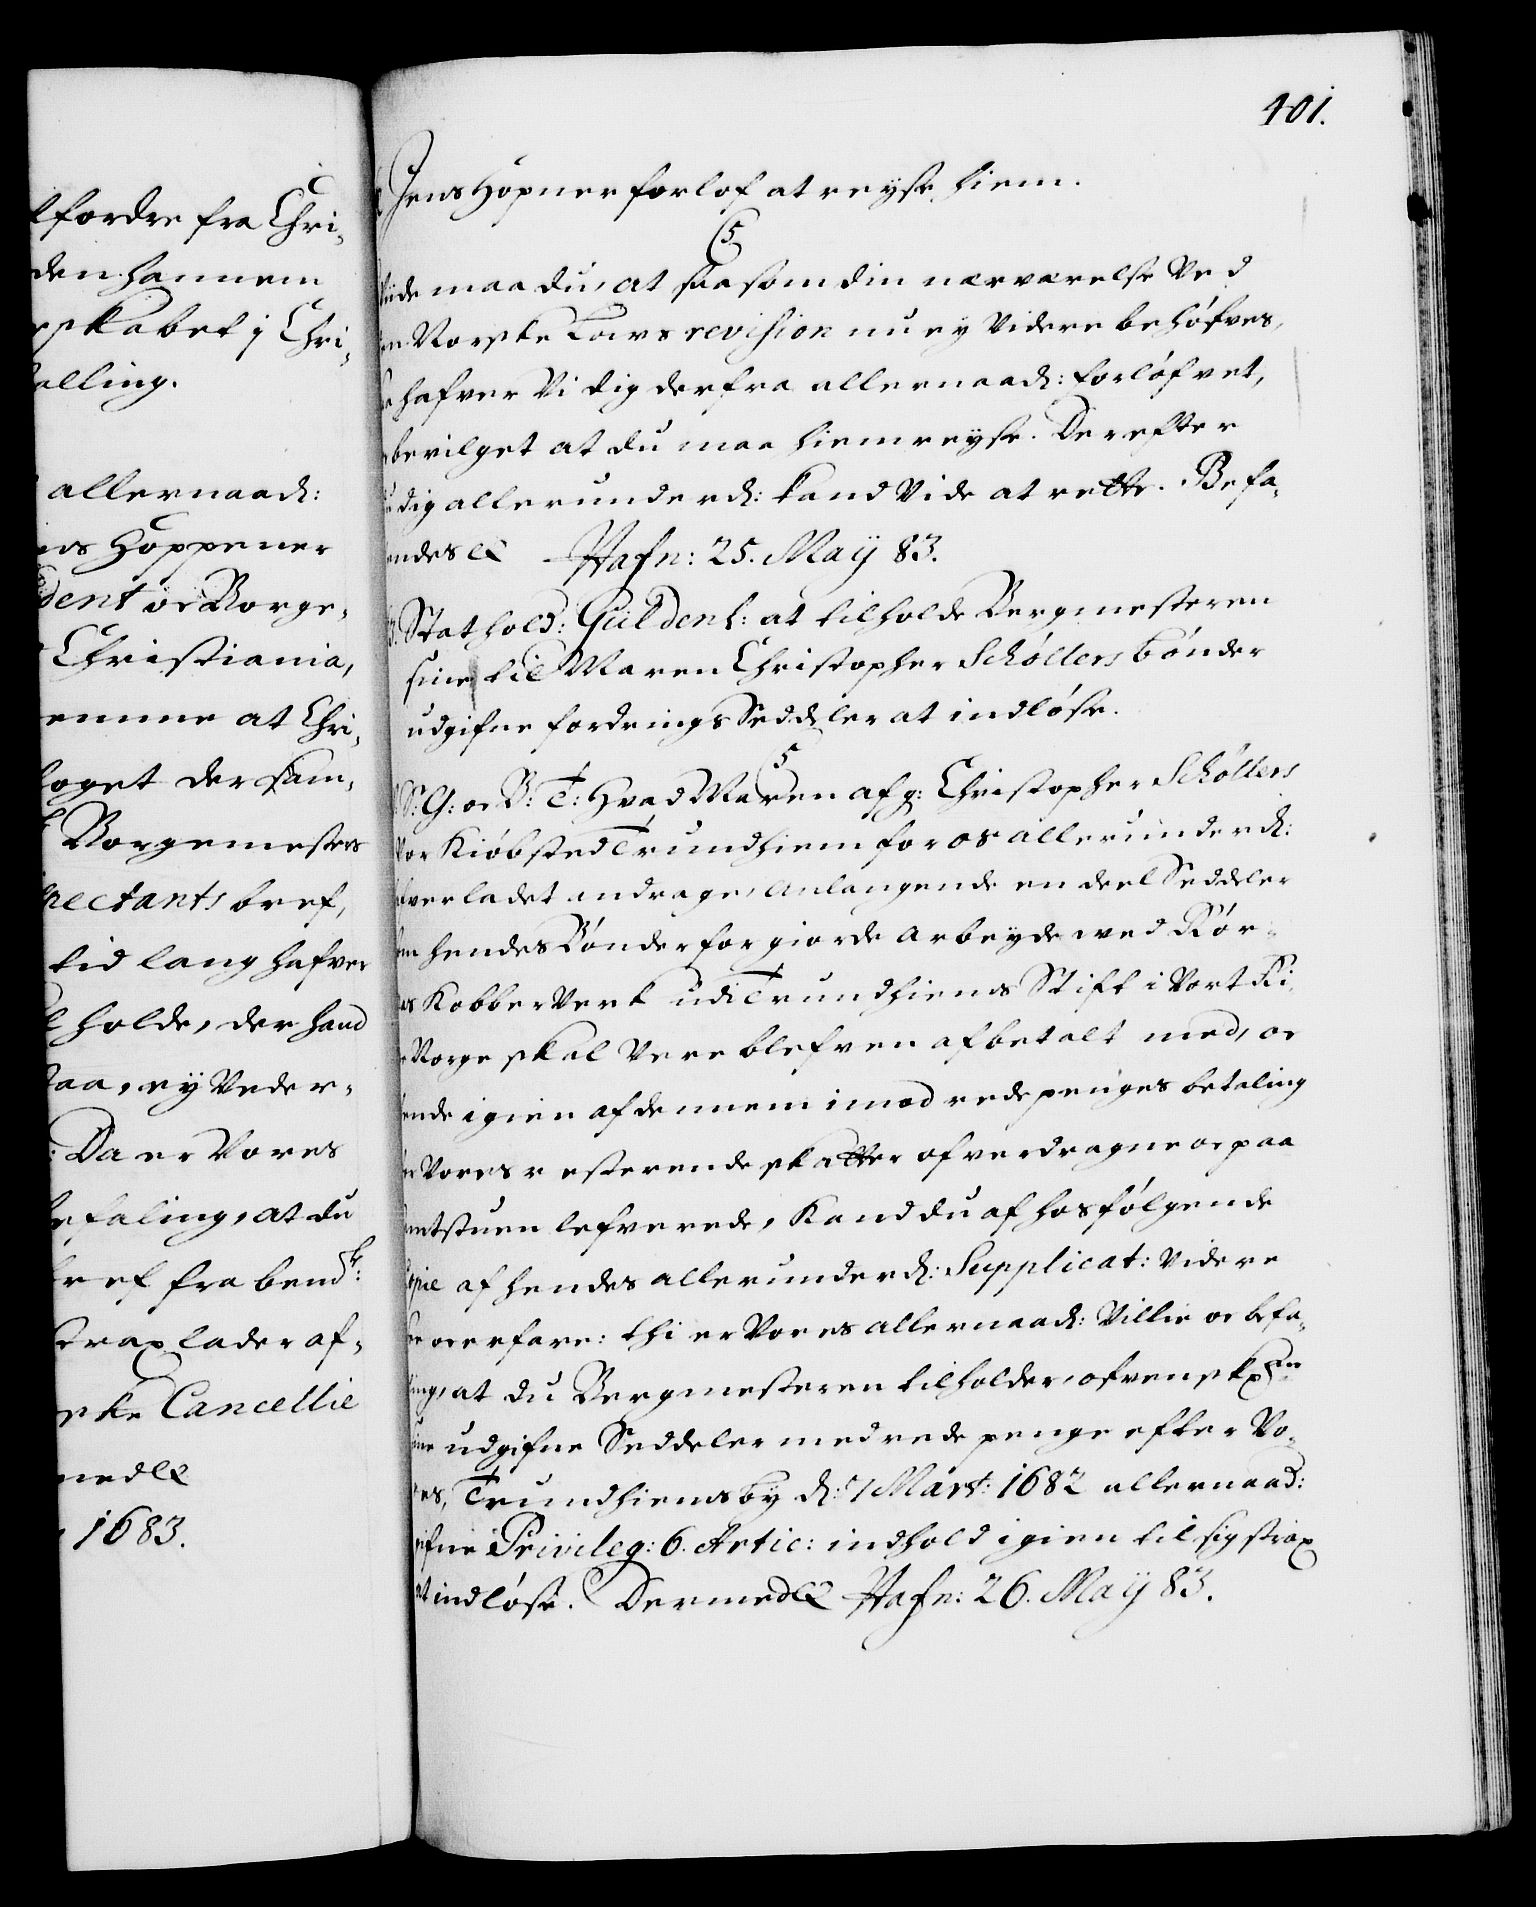 lfordre fra Chri-
den hannem
skabet i Chri-
alling.
allernaad:
ns Høppener
dent oc Borge-
Christiania,
emme at Chri-
oget der sam-
Borgemesters
pectants bref,
tid lang hafver
holde, der hand
aa, ey Veder-
: Da er Vores
befaling, at du
bref fra bend:
strax lader af-
ske Cancellie
med &c
1683.
401.
Jens Høpner forlof at reyse hiem.
5
Viide maa du, at saasom din nærværelse Ved
Norske Lovs revision nu ey Videre behøfves,
hafver Vi dig derfra allernaad: forløfvet,
bevilget at du maa hiemreyse. Derefter
dig allerunderd: kand Vide at rette. Befa-
endes &c Hafn: 25. May 83.
Stathold: Güldenl: at tilholde Bergmesteren
sine til Maren Christopher Schøllers bønder
udgifne fordrings Seddeler at indløse.
5
S: G: oc B: T: Hvad Maren afg: Christopher Schøllers
Vor Kiøbsted Trundhiem for os allerunderd:
fver ladet andrage, anlangende en deel Seddeler
hendes Bønder for giorde arbeyde ved Rør-
os Kobber Verk udi Trundhiems Stift i Vort Ri-
Norge skal Vere blefven afbetalt med, oc
ende igien af dennem imod rede penges betaling
Vores resterende skatter ofverdragne oc paa
mtstuen lefverede, Kand du af hosfølgende
Copie af hendes allerunderd: Supplicat: Videre
oc erfare: thi er Vores allernaad: Villie oc befa-
ling, at du Bergmesteren tilholder, ofvenskr:ne
sine udgifne Seddeler med rede penge efter Vo-
res, Trundhiems by d: 7 Mart: 1682 allernaad:
gifne Privileg: 6. Artic: indhold igien til sig strax
at indløse. Dermed &c Hafn: 26. May 83.